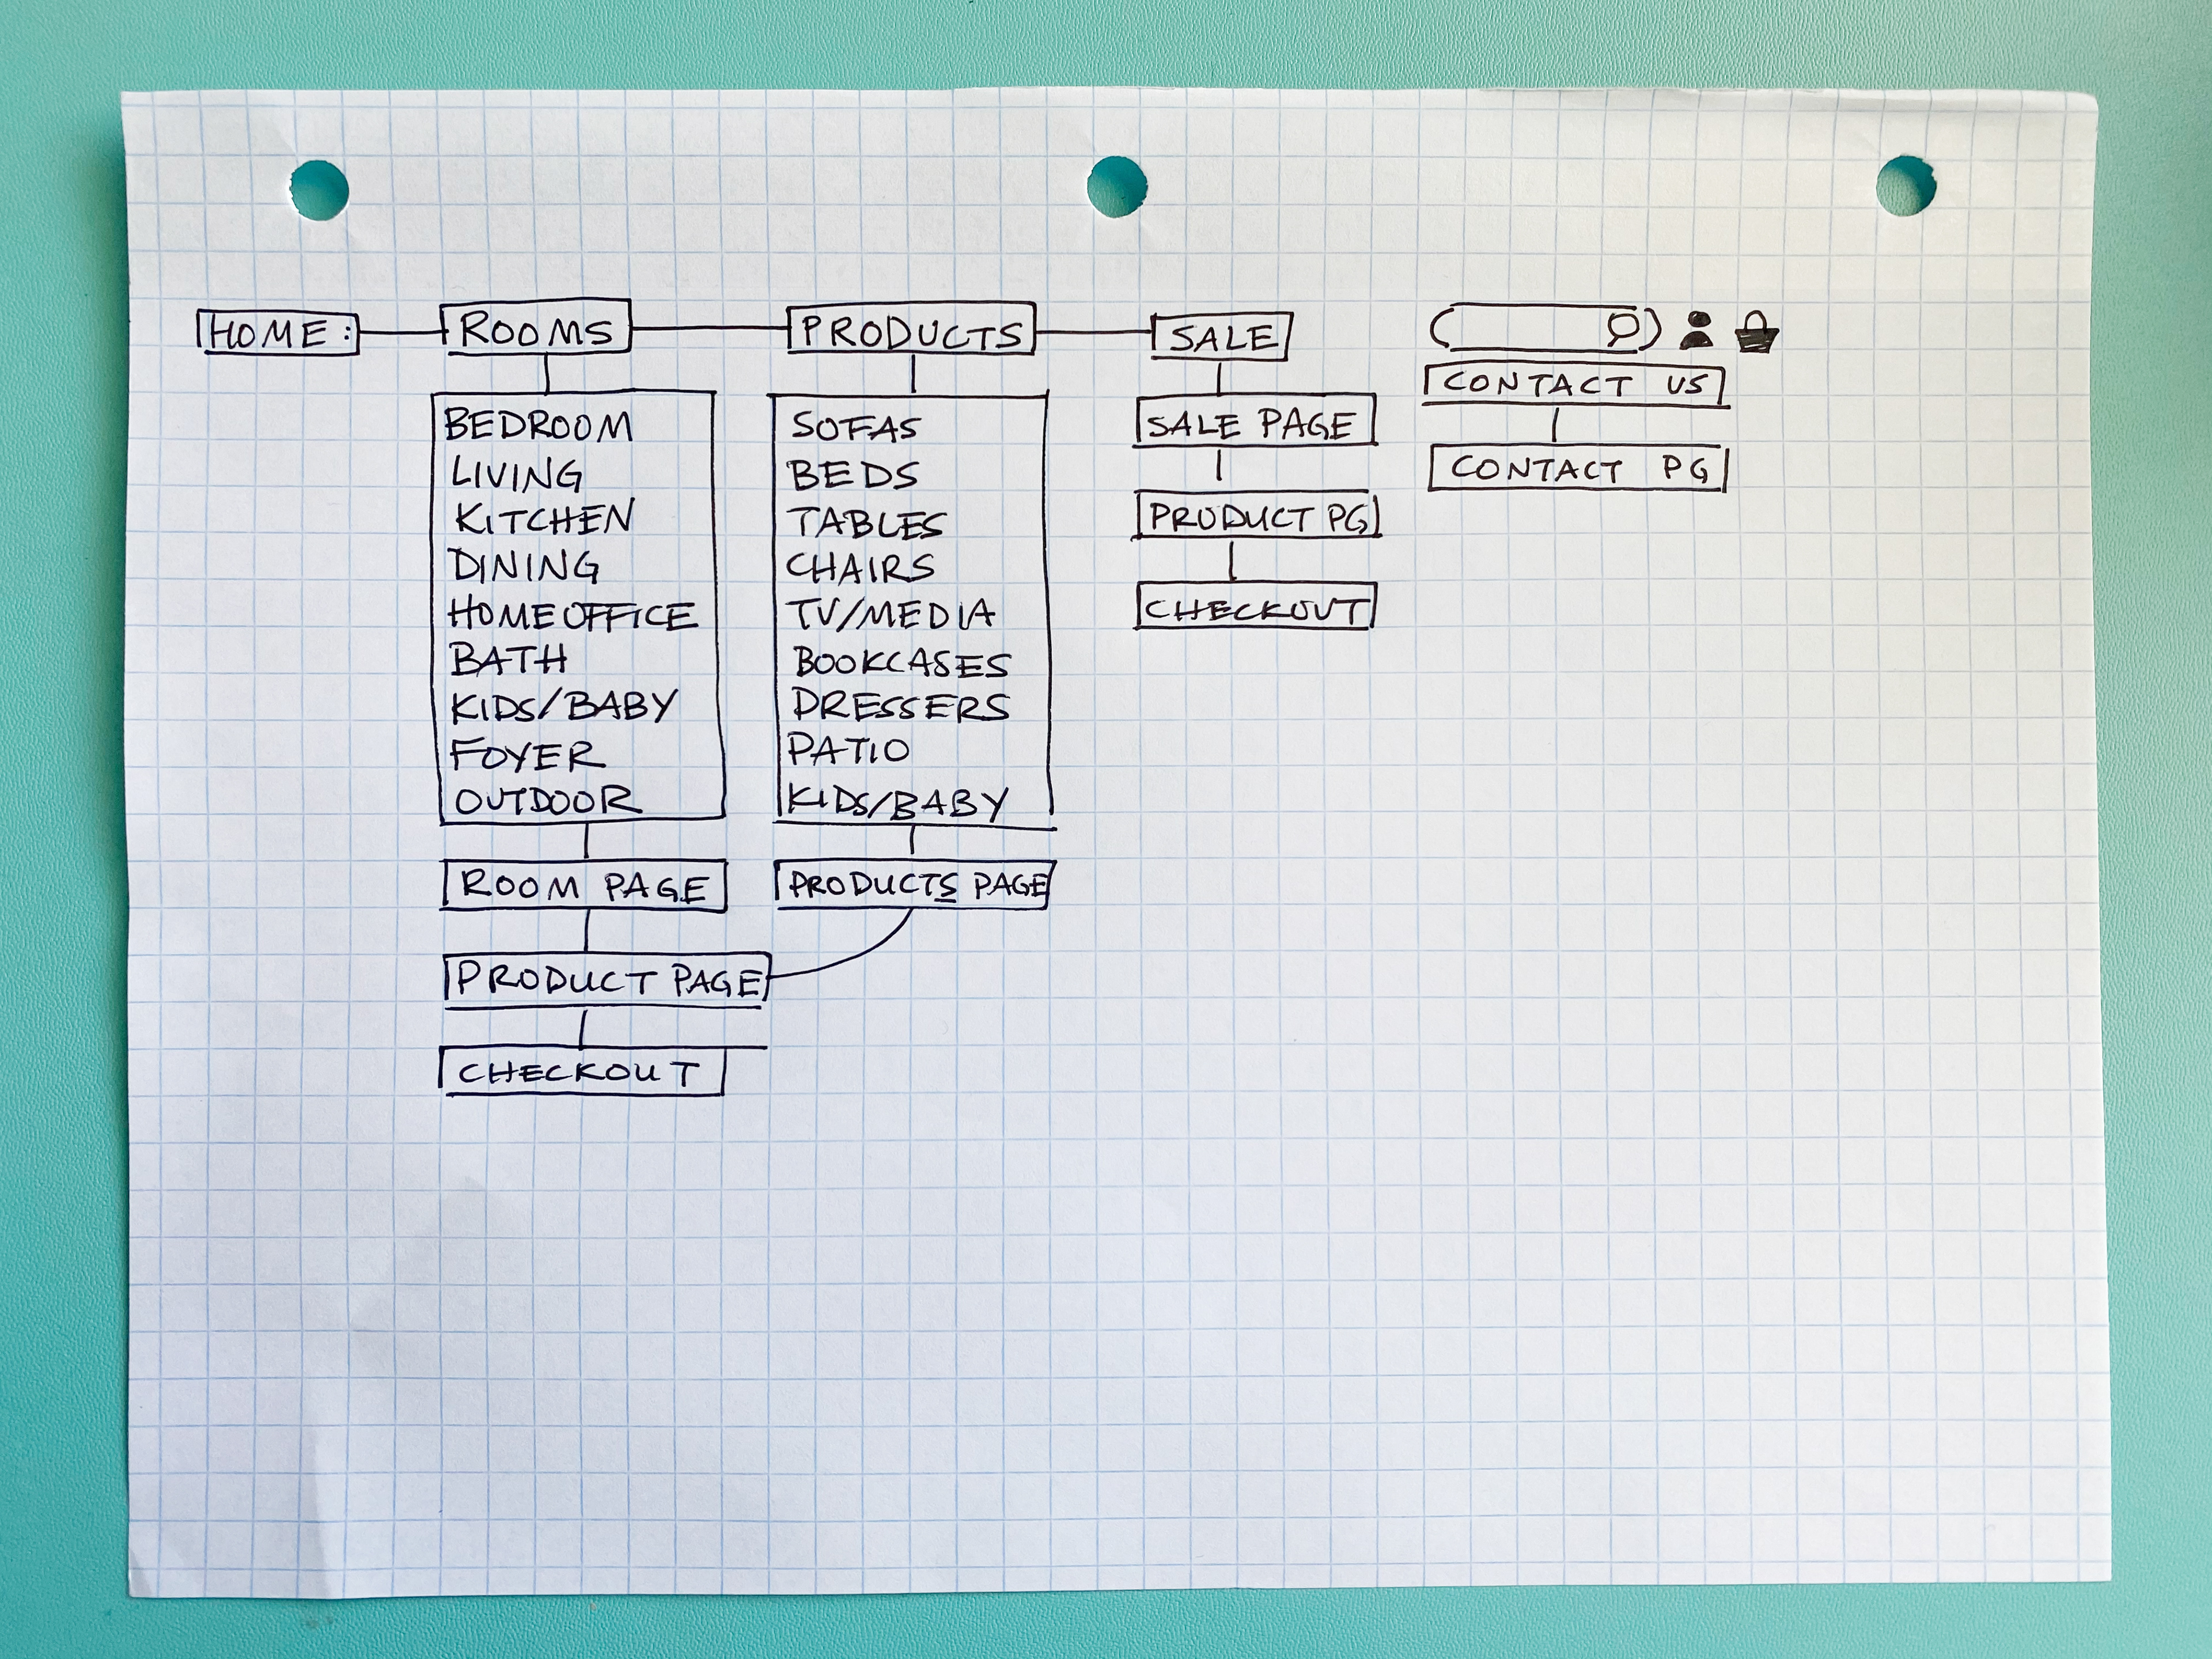 HOME:
ROOMS
PRODUCTS
SALE
BEDROOM
LIVING
KITCHEN
DINING
HOME OFFICE
BATH
KIDS/BABY
FOYER
OUTDOOR
ROOM PAGE
PRODUCT PAGE
CHECKOUT
SOFAS
BEDS
TABLES
CHAIRS
TV/MEDIA
BOOKCASES
DRESSERS
PATIO
KIDS/BABY
PRODUCTS PAGE
SALE PAGE
PRODUCT PG
CHECKOUT
CONTACT US
CONTACT PG